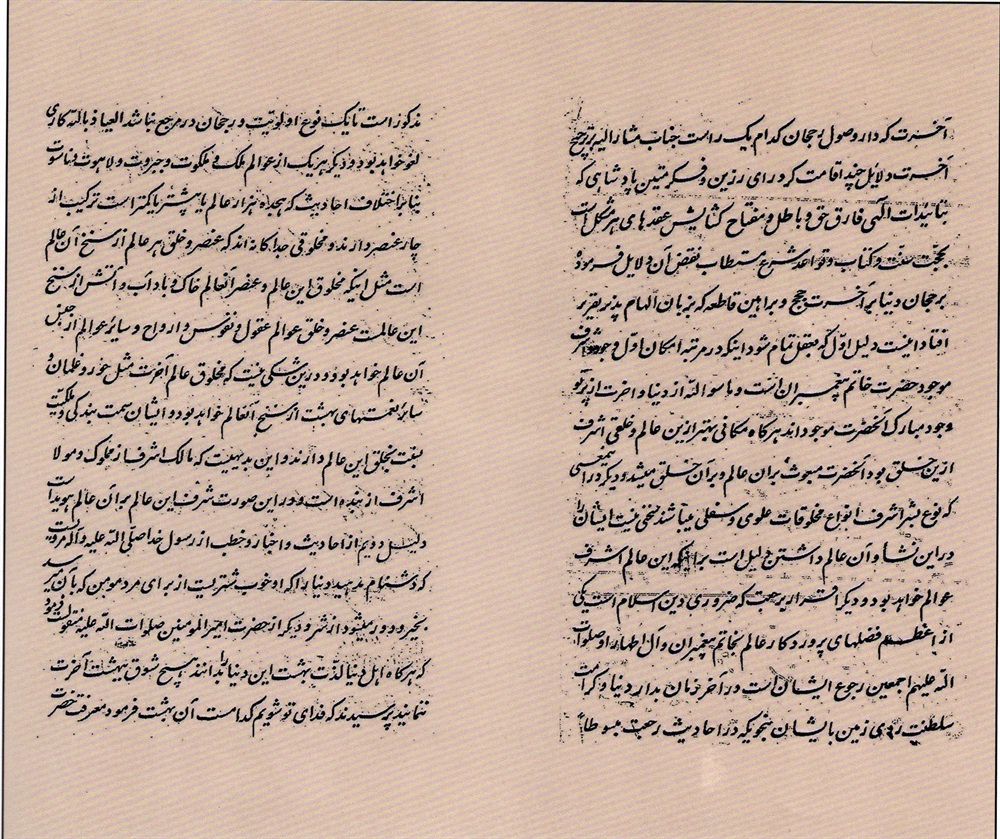 آخرت که دار وصول رجحان کدام یک راست جناب مشار الیه بر ترجیح
آخرت دلایل چند اقامت کرد رای رزین و فکر متین پادشاهی که
بتائیدات الهی فارق حق و باطل و مفتاح کشایش عقدهای هر مشکل است
بحجّت سنّت و کتاب و قواعد شرع مستطاب نقض آن دلایل فرمودۀ
برجحان دنیا بر آخرت حجج و براهین قاطعه که بزبان الهام پذیر تقریر
افتاد اینست دلیل اوّل که بعقل تمام شود اینکه در مرتبه امکان اوّل وجود و اشرف
موجود حضرت خاتم پیغمبران است و ما سوا اللّه از دنیا و اخرت از پرتو
وجود مبارک آنحضرت موجود اند هرگاه مکانی بهتر ازین عالم و خلقی اشرف
ازین خلق بود آنحضرت مبعوث بران عالم و بر آن خلق میشد و دیگر در
که نوع بشر اشرف انواع مخلوقات علوی و سفلی میباشند سخنی نیست ایشان را
در این نشا و آن عالم داشتن دلیل است بر اینکه این عالم اشرف
عوالم خواهد بود و دیگر اقرار برجعت که ضروری دین اسلام است یکی
از اعظم فضلهای پروردکار عالم بخاتم پیغمبران و آل اطهار او صلوات
اللّه علیهم اجمعین رجوع ایشان است در آخر زمان بدار دنیا و کرامت
سلطنت روی زمین بایشان بنحویکه در احادیث رجعت مبسوطاً
مذکور است تا یک نوع اولویت و رجحان در مرجع نباشد العیاذ باللّه کاری
لغو خواهد بود و دیگر هر یک از عوالم ملک و ملکوت و جبروت و لاهوت و ناسوت
بنا بر اختلاف احادیث که هجده هزار عالم یا بیشتر یا کمتر است ترکیب از
چار عنصر دارند و مخلوقی جداکانه اند که عنصر و خلق هر عالم از سنخ آن عالم
است مثل اینکه مخلوق این عالم و عنصر آنعالم خاک و باد آب و آتش از سنخ
این عالمست عنصر و خلق عوالم عقول و نفوس و ارواح و سایر عوالم از جنس
آن عالم خواهد بود و درین شکی نیست که مخلوق عالم آخرت مثل حور و غلمان و
سایر نعمتهای بهشت از سنخ آنعالم خواهد بود و ایشان سمت بندکی و ملکیت
نسبت بخلق این عالم دارند و این بدیهیست که مالک اشرف از مملوک و مولا
اشرف از بنده است و در این صورت شرف این عالم بر آن عالم هویداست
دلیل دویم از احادیث و اخبار و خطب از رسول خدا صلی اللّه علیه و آله مرویست
که دشنام مدهید دنیا را که او خوب شتریست از برای مرد مومن که بآن میرسد
بخیر و دور میشود از شر و دیگر از حضرت امیر المومنین صلوات اللّه علیه منقولست فرمود
که هرکاه اهل دنیا لذّت بهشت این دنیا را بدانند هیچ شوق بهشت آخرت
ننمایند پرسیدند که فدای تو شویم کدامست آن بهشت فرمود معرفت حضرت